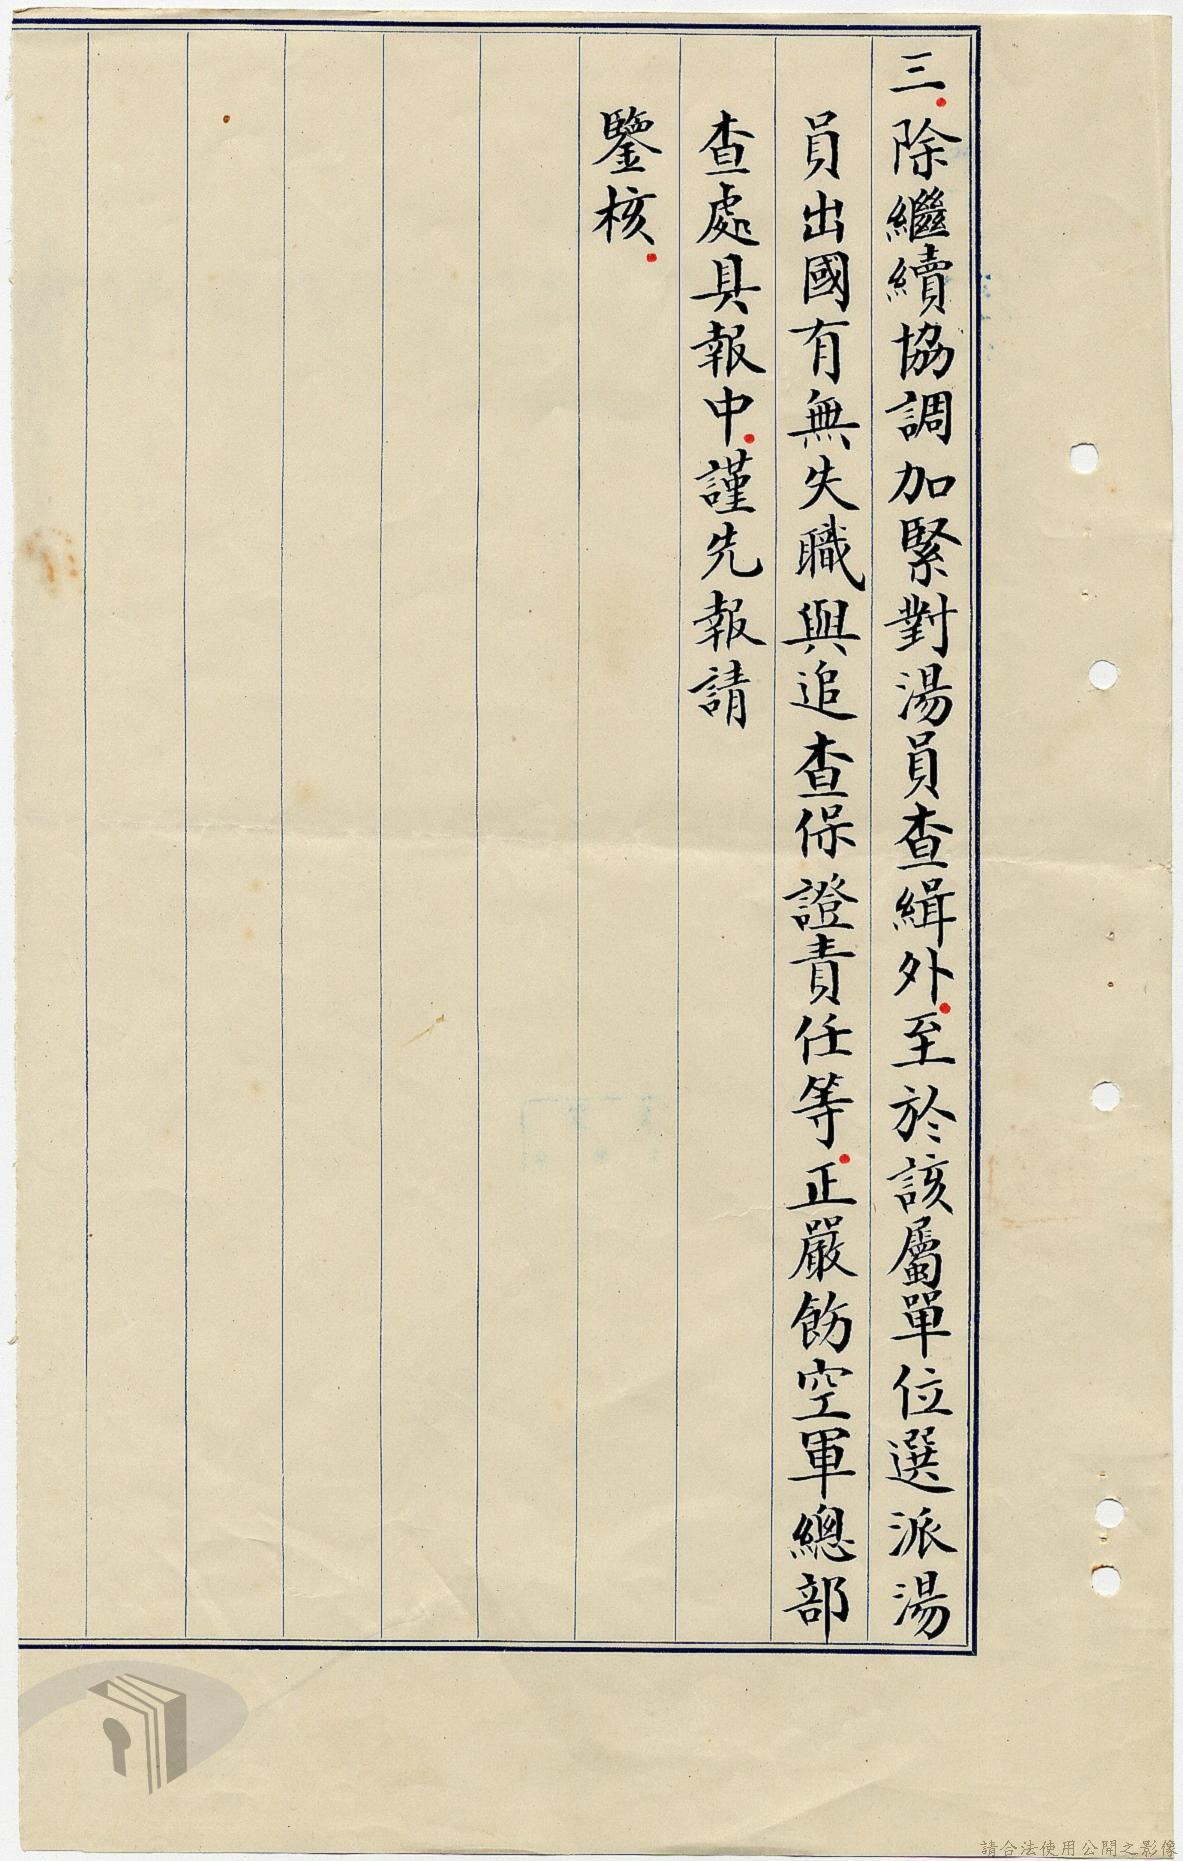 三.除繼續協調加緊對湯員查緝外.至於該屬單位選派湯
員出國有無失職與追查保證責任等.正嚴飭空軍總部
查處具報中.謹先報請
鑒核.
請合法使用公開之影像